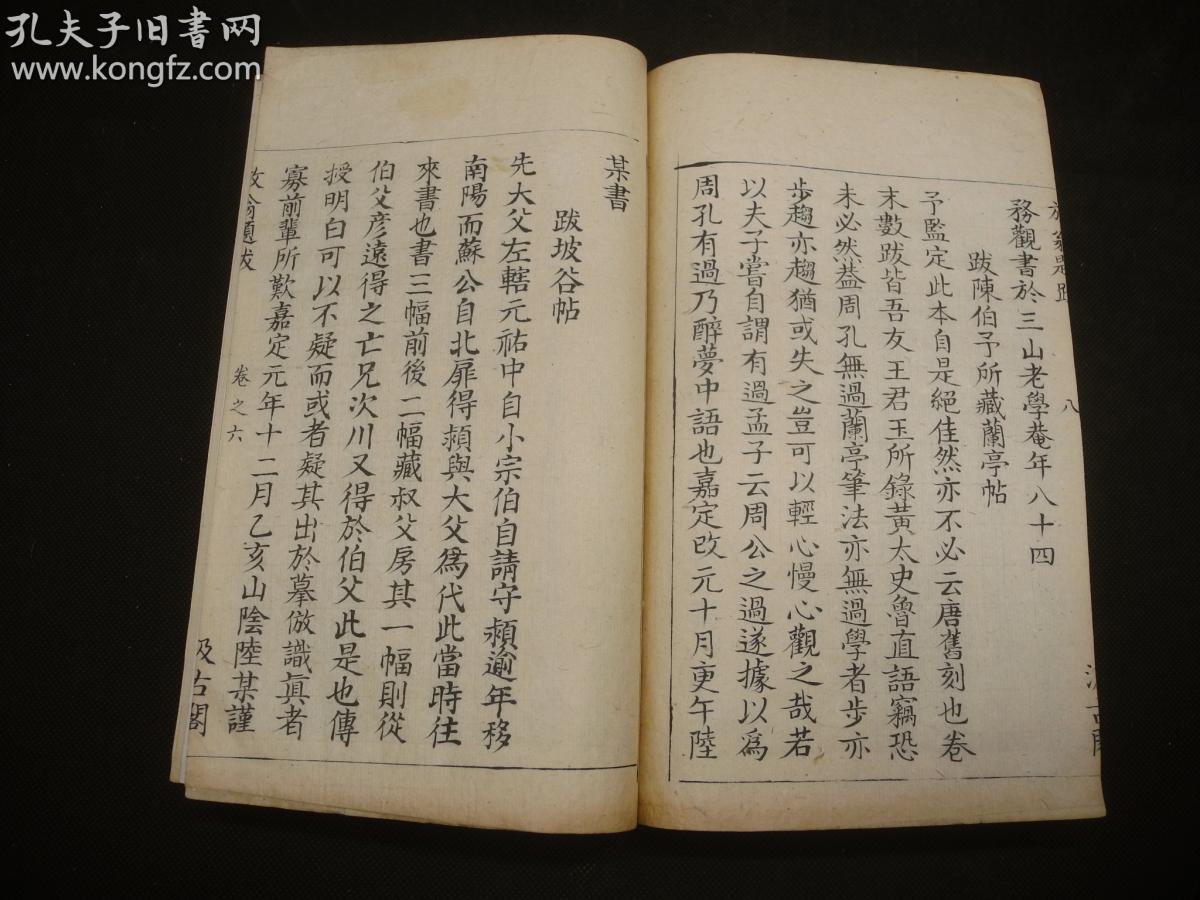 孔夫子旧书网
www.kongfz.com
務觀書於三山老學菴年八十四
跋陳伯予所藏蘭亭帖
予監定此本自是絕佳然亦不必云唐舊刻也卷
末數跋皆吾友王君玉所錄黃太史魯直語竊恐
未必然葢周孔無過蘭亭筆法亦無過學者步亦
步趨亦趨猶或失之豈可以輕心慢心觀之哉若
以夫子嘗自謂有過孟子云周公之過遂據以爲
周孔有過乃醉夢中語也嘉定改元十月庚午陸
某書
跋坡谷帖
先大父左轄元祐中自小宗伯自請守頴逾年移
南陽而蘇公自北扉得頴與大父爲代此當時往
來書也書三幅前後二幅藏叔父房其一幅則從
伯父彦遠得之亡兄次川又得於伯父此是也傳
授明白可以不疑而或者疑其出於摹倣識眞者
寡前輩所歎嘉定元年十二月乙亥山陰陸某謹
卷之六
汲古閣
八